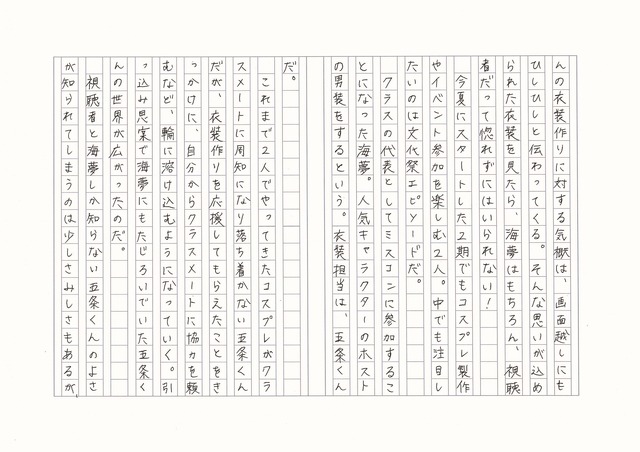 んの衣装作りに対する気概は、画面越しにも
ひしひしと伝わってくる。そんな思いが込め
られた衣装を見たら、海夢はもちろん、視聴
者だって惚れずにはいられない！
　今夏にスタートした２期でもコスプレ製作
やイベント参加を楽しむ２人。中でも注目し
たいのは文化祭エピソードだ。
　クラスの代表としてミスコンに参加するこ
とになった海夢。人気キャラクターのホスト
の男装をするという。衣装担当は、五条くん
だ。
　これまで２人でやってきたコスプレがクラ
スメートに周知になり落ち着かない五条くん
だが、衣装作りを応援してもらえたことをき
っかけに、自分からクラスメートに協力を頼
むなど、輪に溶け込むようになっていく。引
っ込み思案で海夢にもたじろいでいた五条く
んの世界が広がったのだ。
　視聴者と海夢しか知らない五条くんのよさ
が知られてしまうのは少しさみしさもあるが、